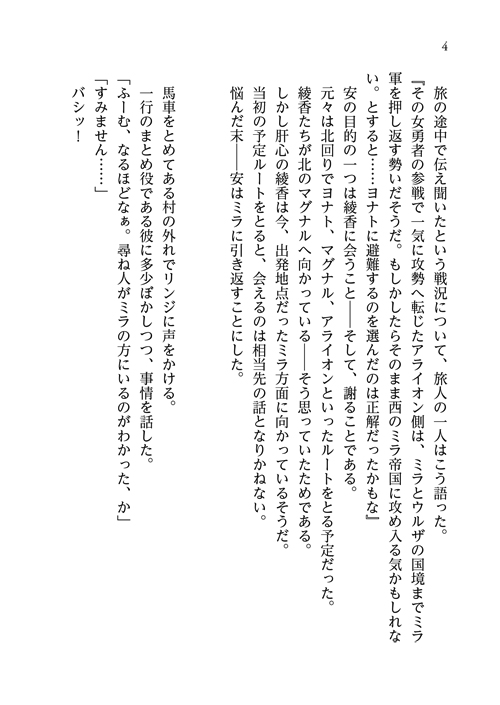 4
旅の途中で伝え聞いたという戦況について、旅人の一人はこう語った。
『その女勇者の参戦で一気に攻勢へ転じたアライオン側は、ミラとウルザの国境までミラ
軍を押し返す勢いだそうだ。もしかしたらそのまま西のミラ帝国に攻め入る気かもしれな
い。とすると……ヨナトに避難するのを選んだのは正解だったかもな』
安の目的の一つは綾香に会うこと――そして、謝ることである。
元々は北回りでヨナト、マグナル、アライオンといったルートをとる予定だった。
綾香たちが北のマグナルへ向かっている――そう思っていたためである。
しかし肝心の綾香は今、出発地点だったミラ方面に向かっているそうだ。
当初の予定ルートをとると、会えるのは相当先の話となりかねない。
悩んだ末――安はミラに引き返すことにした。
馬車をとめてある村の外れでリンジに声をかける。
一行のまとめ役である彼に多少ぼかしつつ、事情を話した。
「ふーむ、なるほどなぁ。尋ね人がミラの方にいるのがわかった、か」
「すみません……」
バシッ！